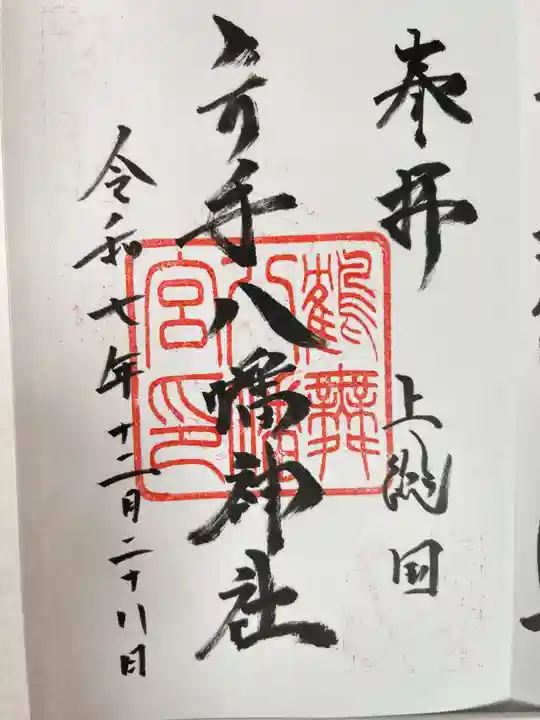 奉拝　上総国
手八幡神社
令和七年十二月二十八日
鶴舞
八幡
宮印